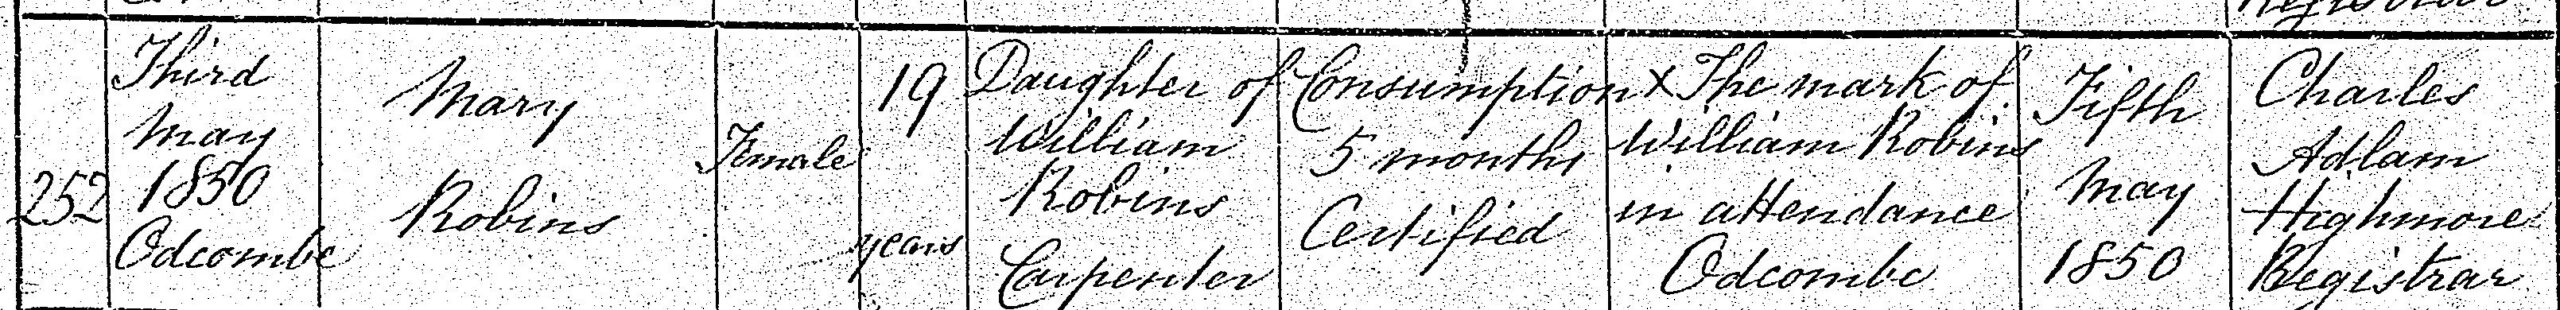 252
Third
May
1850
Odcombe
Mary
Robins
Female
19
years
Daughter of
William
Robins
Carpenter
Consumption
5 months
Certified
X The mark of
William Robins
in attendance
Odcombe
Fifth
May
1850
Charles
Adlam
Highmore
Registrar